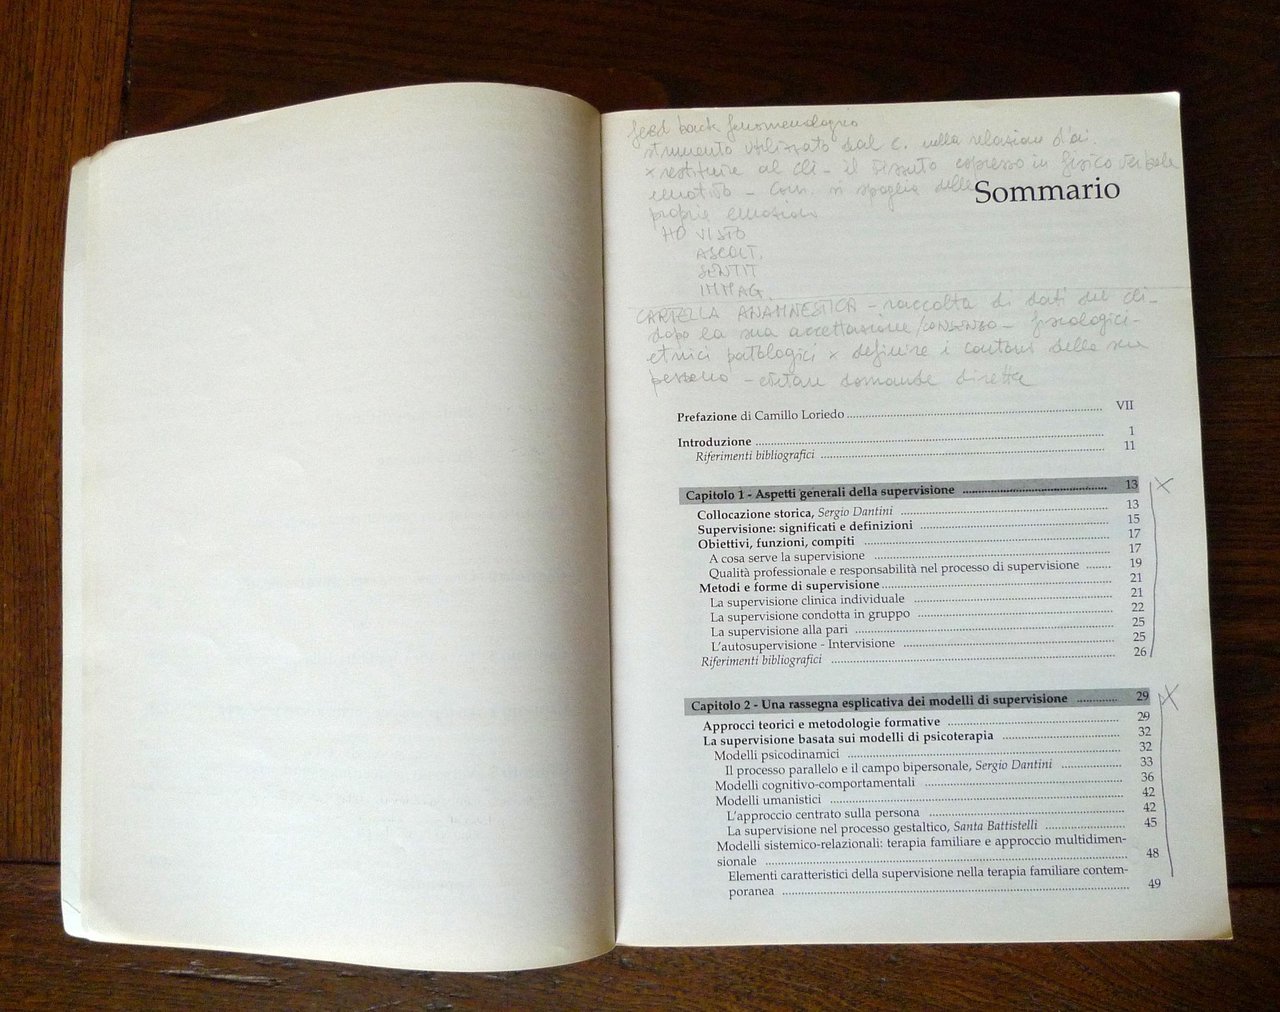 feed back fenomenologico
strumento utilizzato dal c. nella relazione d'ai.
x restituire al cli - il vissuto espresso in fisico verbale
emotivo - Coun. si spoglia delle
proprie emozioni
Sommario
HO VISTO
ASCOLT.
SENTIT
IMMAG.
CARTELLA ANAMNESTICA - raccolta di dati del cli-
dopo la sua accettazione/CONSENSO - fisiologici-
etnici patologici x definire i contorni della sua
persona - evitare domande dirette
Prefazione di Camillo Loriedo ........ VII
Introduzione ........ 1
Riferimenti bibliografici ........ 11
Capitolo 1 - Aspetti generali della supervisione ........ 13
Collocazione storica, Sergio Dantini ........ 13
Supervisione: significati e definizioni ........ 15
Obiettivi, funzioni, compiti ........ 17
A cosa serve la supervisione ........ 17
Qualità professionale e responsabilità nel processo di supervisione ........ 19
Metodi e forme di supervisione ........ 21
La supervisione clinica individuale ........ 21
La supervisione condotta in gruppo ........ 22
La supervisione alla pari ........ 25
L'autosupervisione - Intervisione ........ 25
Riferimenti bibliografici ........ 26
Capitolo 2 - Una rassegna esplicativa dei modelli di supervisione ........ 29
Approcci teorici e metodologie formative ........ 29
La supervisione basata sui modelli di psicoterapia ........ 32
Modelli psicodinamici ........ 32
Il processo parallelo e il campo bipersonale, Sergio Dantini ........ 33
Modelli cognitivo-comportamentali ........ 36
Modelli umanistici ........ 42
L'approccio centrato sulla persona ........ 42
La supervisione nel processo gestaltico, Santa Battistelli ........ 45
Modelli sistemico-relazionali: terapia familiare e approccio multidimen-
sionale ........ 48
Elementi caratteristici della supervisione nella terapia familiare contem-
poranea ........ 49